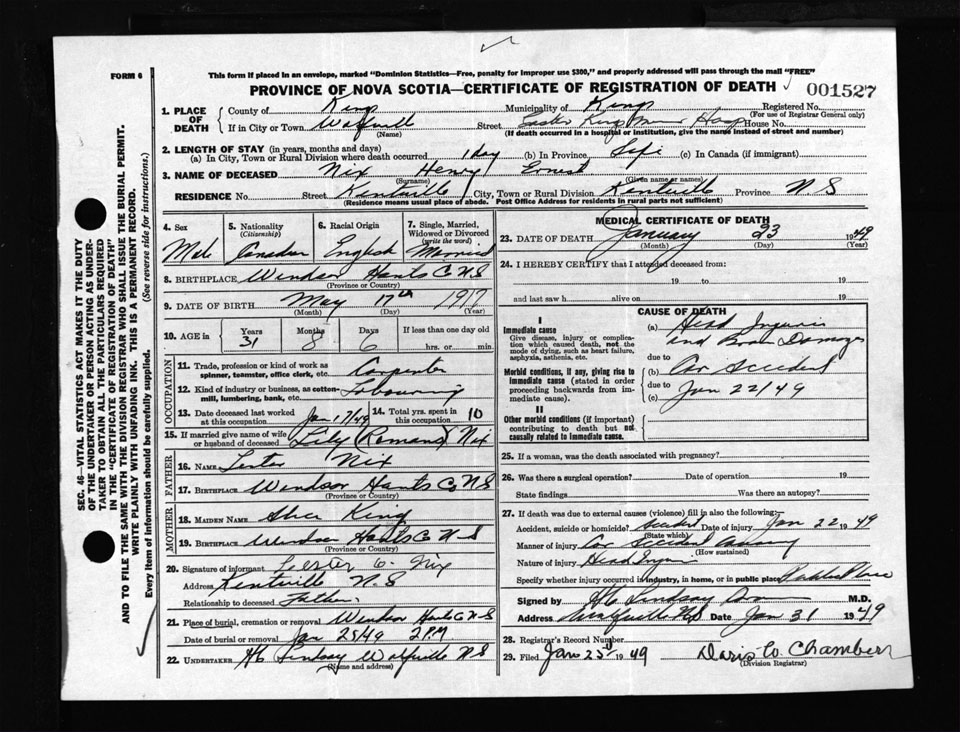 FORM 6
This form if placed in an envelope, marked "Dominion Statistics—Free, penalty for improper use $300," and properly addressed will pass through the mail "FREE"
PROVINCE OF NOVA SCOTIA—CERTIFICATE OF REGISTRATION OF DEATH 001527
1. PLACE OF DEATH County of Kings Municipality of Kings Registered No.
(For use of Registrar General only)
If in City or Town Wolfville Street Eastern Kings Mem Hosp House No.
(Name) (If death occurred in a hospital or institution, give the name instead of street and number)
2. LENGTH OF STAY (in years, months and days)
(a) In City, Town or Rural Division where death occurred 1 day (b) In Province Life (c) In Canada (if immigrant)
3. NAME OF DECEASED Nix Henry Ernest
(Surname) (Given name or names)
RESIDENCE No. Street Kentville City, Town or Rural Division Kentville Province N S
(Residence means usual place of abode. Post Office Address for residents in rural parts not sufficient)
4. Sex 5. Nationality (Citizenship) 6. Racial Origin 7. Single, Married, Widowed or Divorced (write the word)
Male Canadian English Married
8. BIRTHPLACE Windsor Hants Co N S
(Province or Country)
9. DATE OF BIRTH May 17th 1917
(Month) (Day) (Year)
10. AGE in Years Months Days If less than one day old
31 8 6 hrs. or min.
OCCUPATION
11. Trade, profession or kind of work as spinner, teamster, office clerk, etc. Carpenter
12. Kind of industry or business, as cotton-mill, lumbering, bank, etc. Labouring
13. Date deceased last worked at this occupation Jan 17/49 14. Total yrs. spent in this occupation 10
15. If married give name of wife or husband of deceased Lily (Romans) Nix
FATHER
16. NAME Lester Nix
17. BIRTHPLACE Windsor Hants Co N S
(Province or Country)
MOTHER
18. MAIDEN NAME King
19. BIRTHPLACE Windsor Hants Co N S
(Province or Country)
20. Signature of informant Lester C. Nix
Address Kentville N. S
Relationship to deceased Father
21. Place of burial, cremation or removal Windsor Hants Co N S
Date of burial or removal Jan 25/49 2 PM
22. UNDERTAKER H C Lindsay Wolfville N S
(Name and address)
MEDICAL CERTIFICATE OF DEATH
23. DATE OF DEATH January 23 1949
(Month) (Day) (Year)
24. I HEREBY CERTIFY that I attended deceased from:
19 to 19
and last saw h alive on 19
CAUSE OF DEATH
I
Immediate cause
Give disease, injury or complication which caused death, not the mode of dying, such as heart failure, asphyxia, asthenia, etc.
Morbid conditions, if any, giving rise to immediate cause (stated in order proceeding backwards from immediate cause).
II
Other morbid conditions (if important) contributing to death but not causally related to immediate cause.
(a) Head Injuries
and Brain Damage
due to
(b) Car Accident
due to
(c) Jan 22/49
25. If a woman, was the death associated with pregnancy?
26. Was there a surgical operation? Date of operation 19
State findings Was there an autopsy?
27. If death was due to external causes (violence) fill in also the following:
Accident, suicide or homicide? Accident Date of injury Jan 22 1949
(State which)
Manner of injury Car Accident
(How sustained)
Nature of injury Head Injury
Specify whether injury occurred in industry, in home, or in public place Public Place
Signed by M.D.
Address Date Jan 31 1949
28. Registrar's Record Number
29. Filed Jan 25th 1949 Doris W. Chambers
(Division Registrar)
SEC. 46—VITAL STATISTICS ACT MAKES IT THE DUTY
OF THE UNDERTAKER OR PERSON ACTING AS UNDER-
TAKER TO OBTAIN ALL THE PARTICULARS REQUIRED
IN THE "CERTIFICATE OF REGISTRATION OF DEATH"
AND TO FILE THE SAME WITH THE DIVISION REGISTRAR WHO SHALL ISSUE THE BURIAL PERMIT.
WRITE PLAINLY WITH UNFADING INK. THIS IS A PERMANENT RECORD.
Every item of information should be carefully supplied. (See reverse side for instructions.)